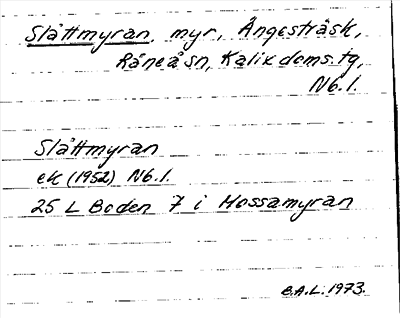 Slåttmyran, myr, Ängesträsk,
Råneå sn, Kalix doms.tg,
Nb.l.
Slåttmyran
ek (1952) Nb.l.
25 L Boden 7 i Mossamyran
B.A.L. 1973.